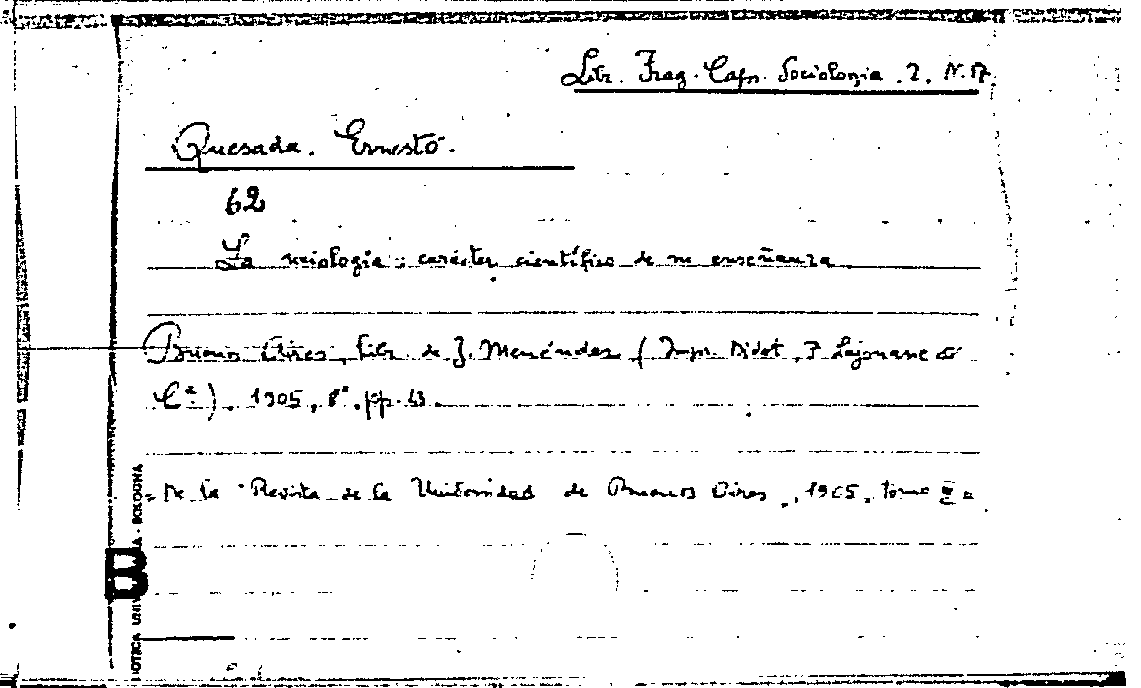 Litr. Frag. Capn. Sociologia. 2. N. 17.
Quesada. Ernesto.
62
La sociologia: carácter científico de su enseñanza
Buenos Aires, libr. de J. Menéndez (Impr. Didot, F Lajouane &
Cª). 1905, 8°. pp. 43.
= De la "Revista de la Universidad de Buenos Aires, 1905, tomo
BIOTECA UNIV A - BOLOGNA
B